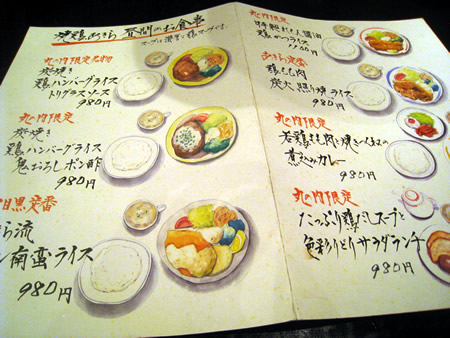 焼鶏あきら 昼間のお食事
丸の内限定名物
炭焼き
鶏ハンバーグライス
トリグラスソース
980円
丸の内限定
炭焼き
鶏ハンバーグライス
鬼おろしポン酢
980円
目黒定番
ら流
ン南蛮ライス
980円
丸の内限定
醤油
鶏かつライス
1100円
あきら定番
鶏もも肉
炭火 照り焼ライス
980円
丸の内限定
若鶏もも肉と焼きつくねの
煮込みカレー
980円
丸の内限定
たっぷり鶏だしスープと
色彩りどりサラダランチ
980円